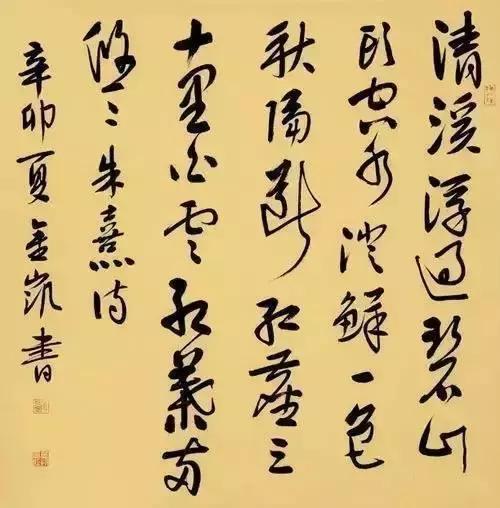 清溪流過碧山
頭空水澄鮮一色
秋隔斷紅塵三
十里白雲紅葉兩
悠々朱熹詩
辛卯夏金凱書